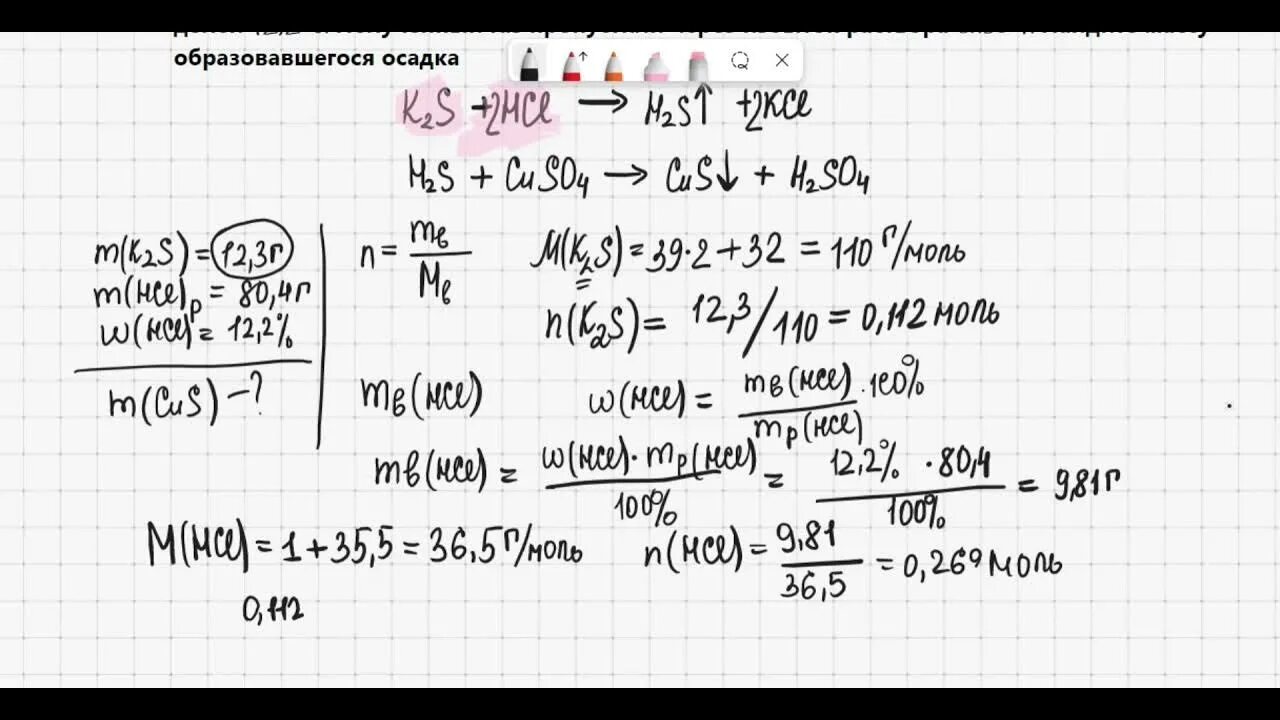 образовавшегося осадка
K₂S + 2HCl → H₂S↑ + 2KCl
H₂S + CuSO₄ → CuS↓ + H₂SO₄
m(K₂S) = 12,3г
m(HCl)р = 80,4г
w(HCl) = 12,2%
m(CuS) – ?
n = mв / Mв
M(K₂S) = 39·2 + 32 = 110 г/моль
n(K₂S) = 12,3/110 = 0,112 моль
mв(HCl)
w(HCl) = mв(HCl)·100% / mр(HCl)
mв(HCl) = w(HCl)·mр(HCl) / 100% = 12,2% · 80,4 / 100% = 9,81г
M(HCl) = 1 + 35,5 = 36,5 г/моль
n(HCl) = 9,81 / 36,5 = 0,269 моль
0,112